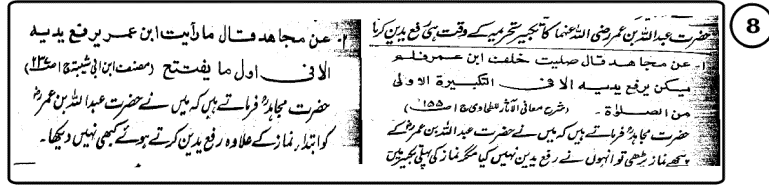 8
حضرت عبداللہ بن عمر رضی اللہ عنہما کا تکبیر تحریمہ کے وقت ہی رفع یدین کرنا
۱۔ عن مجاهد قال صليت خلف ابن عمر فلم
يكن يرفع يديه الا فى التكبيرة الاولى
من الصلاة۔ (شرح معانی الآثار للطحاوی ج ا ص ۱۵۵)
حضرت مجاہدؒ فرماتے ہیں کہ میں نے حضرت عبداللہ بن عمرؓ کے
پیچھے نماز پڑھی تو انہوں نے رفع یدین نہیں کیا مگر نماز کی پہلی تکبیر میں
۱۔ عن مجاهد قال ما رأيت ابن عمر يرفع يديه
الا فى اول ما يفتتح (مصنف ابن ابی شیبہ ج ا ص ۲۳۷)
حضرت مجاہدؒ فرماتے ہیں کہ میں نے حضرت عبداللہ بن عمرؓ
کو ابتداء نماز کے علاوہ رفع یدین کرتے ہوئے کبھی نہیں دیکھا۔